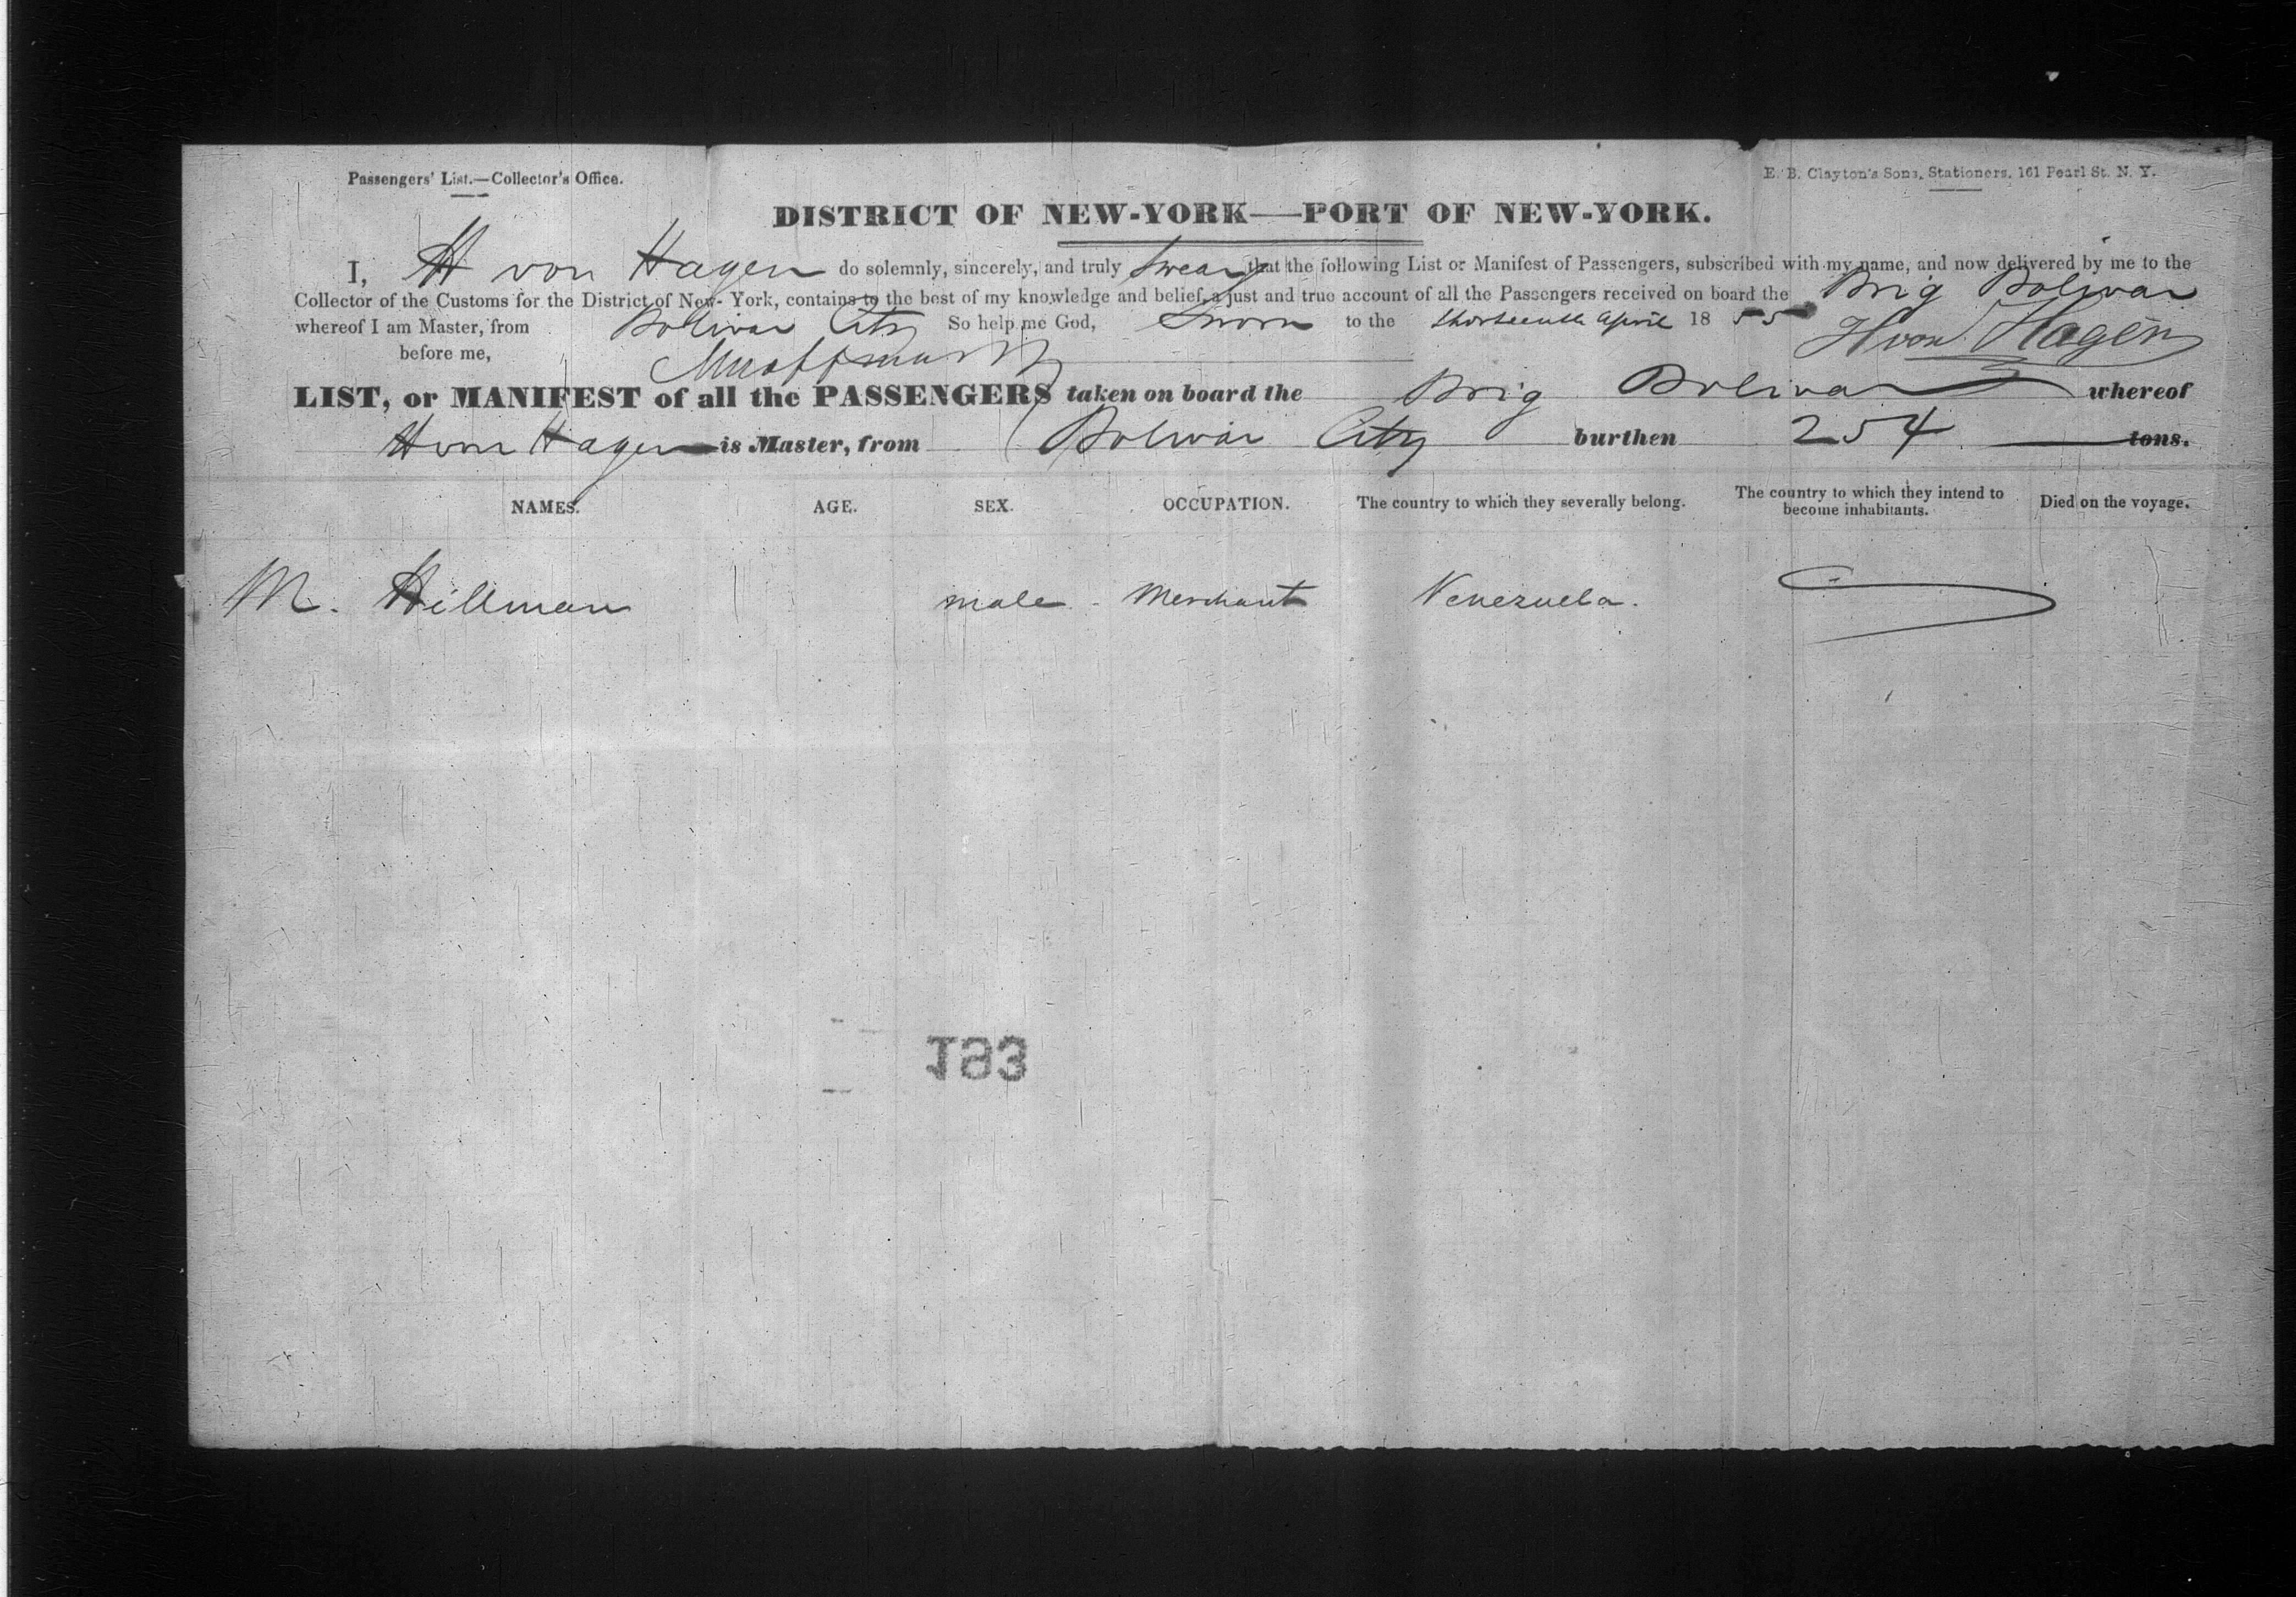 Passengers' List.—Collector's Office.
E. B. Clayton's Sons, Stationers, 161 Pearl St. N. Y.
DISTRICT OF NEW-YORK—PORT OF NEW-YORK.
I, H von Hagen do solemnly, sincerely, and truly swear that the following List or Manifest of Passengers, subscribed with my name, and now delivered by me to the
Collector of the Customs for the District of New-York, contains to the best of my knowledge and belief, a just and true account of all the Passengers received on board the Brig Bolivar
whereof I am Master, from Bolivar City So help me God, Sworn to the thirteenth April 1855 H von Hagen
before me,
LIST, or MANIFEST of all the PASSENGERS taken on board the Brig Bolivar whereof
H von Hagen is Master, from Bolivar City burthen 254 tons.
NAMES. AGE. SEX. OCCUPATION. The country to which they severally belong. The country to which they intend to become inhabitants. Died on the voyage.
M. Hillman male - Merchant Venezuela.
193